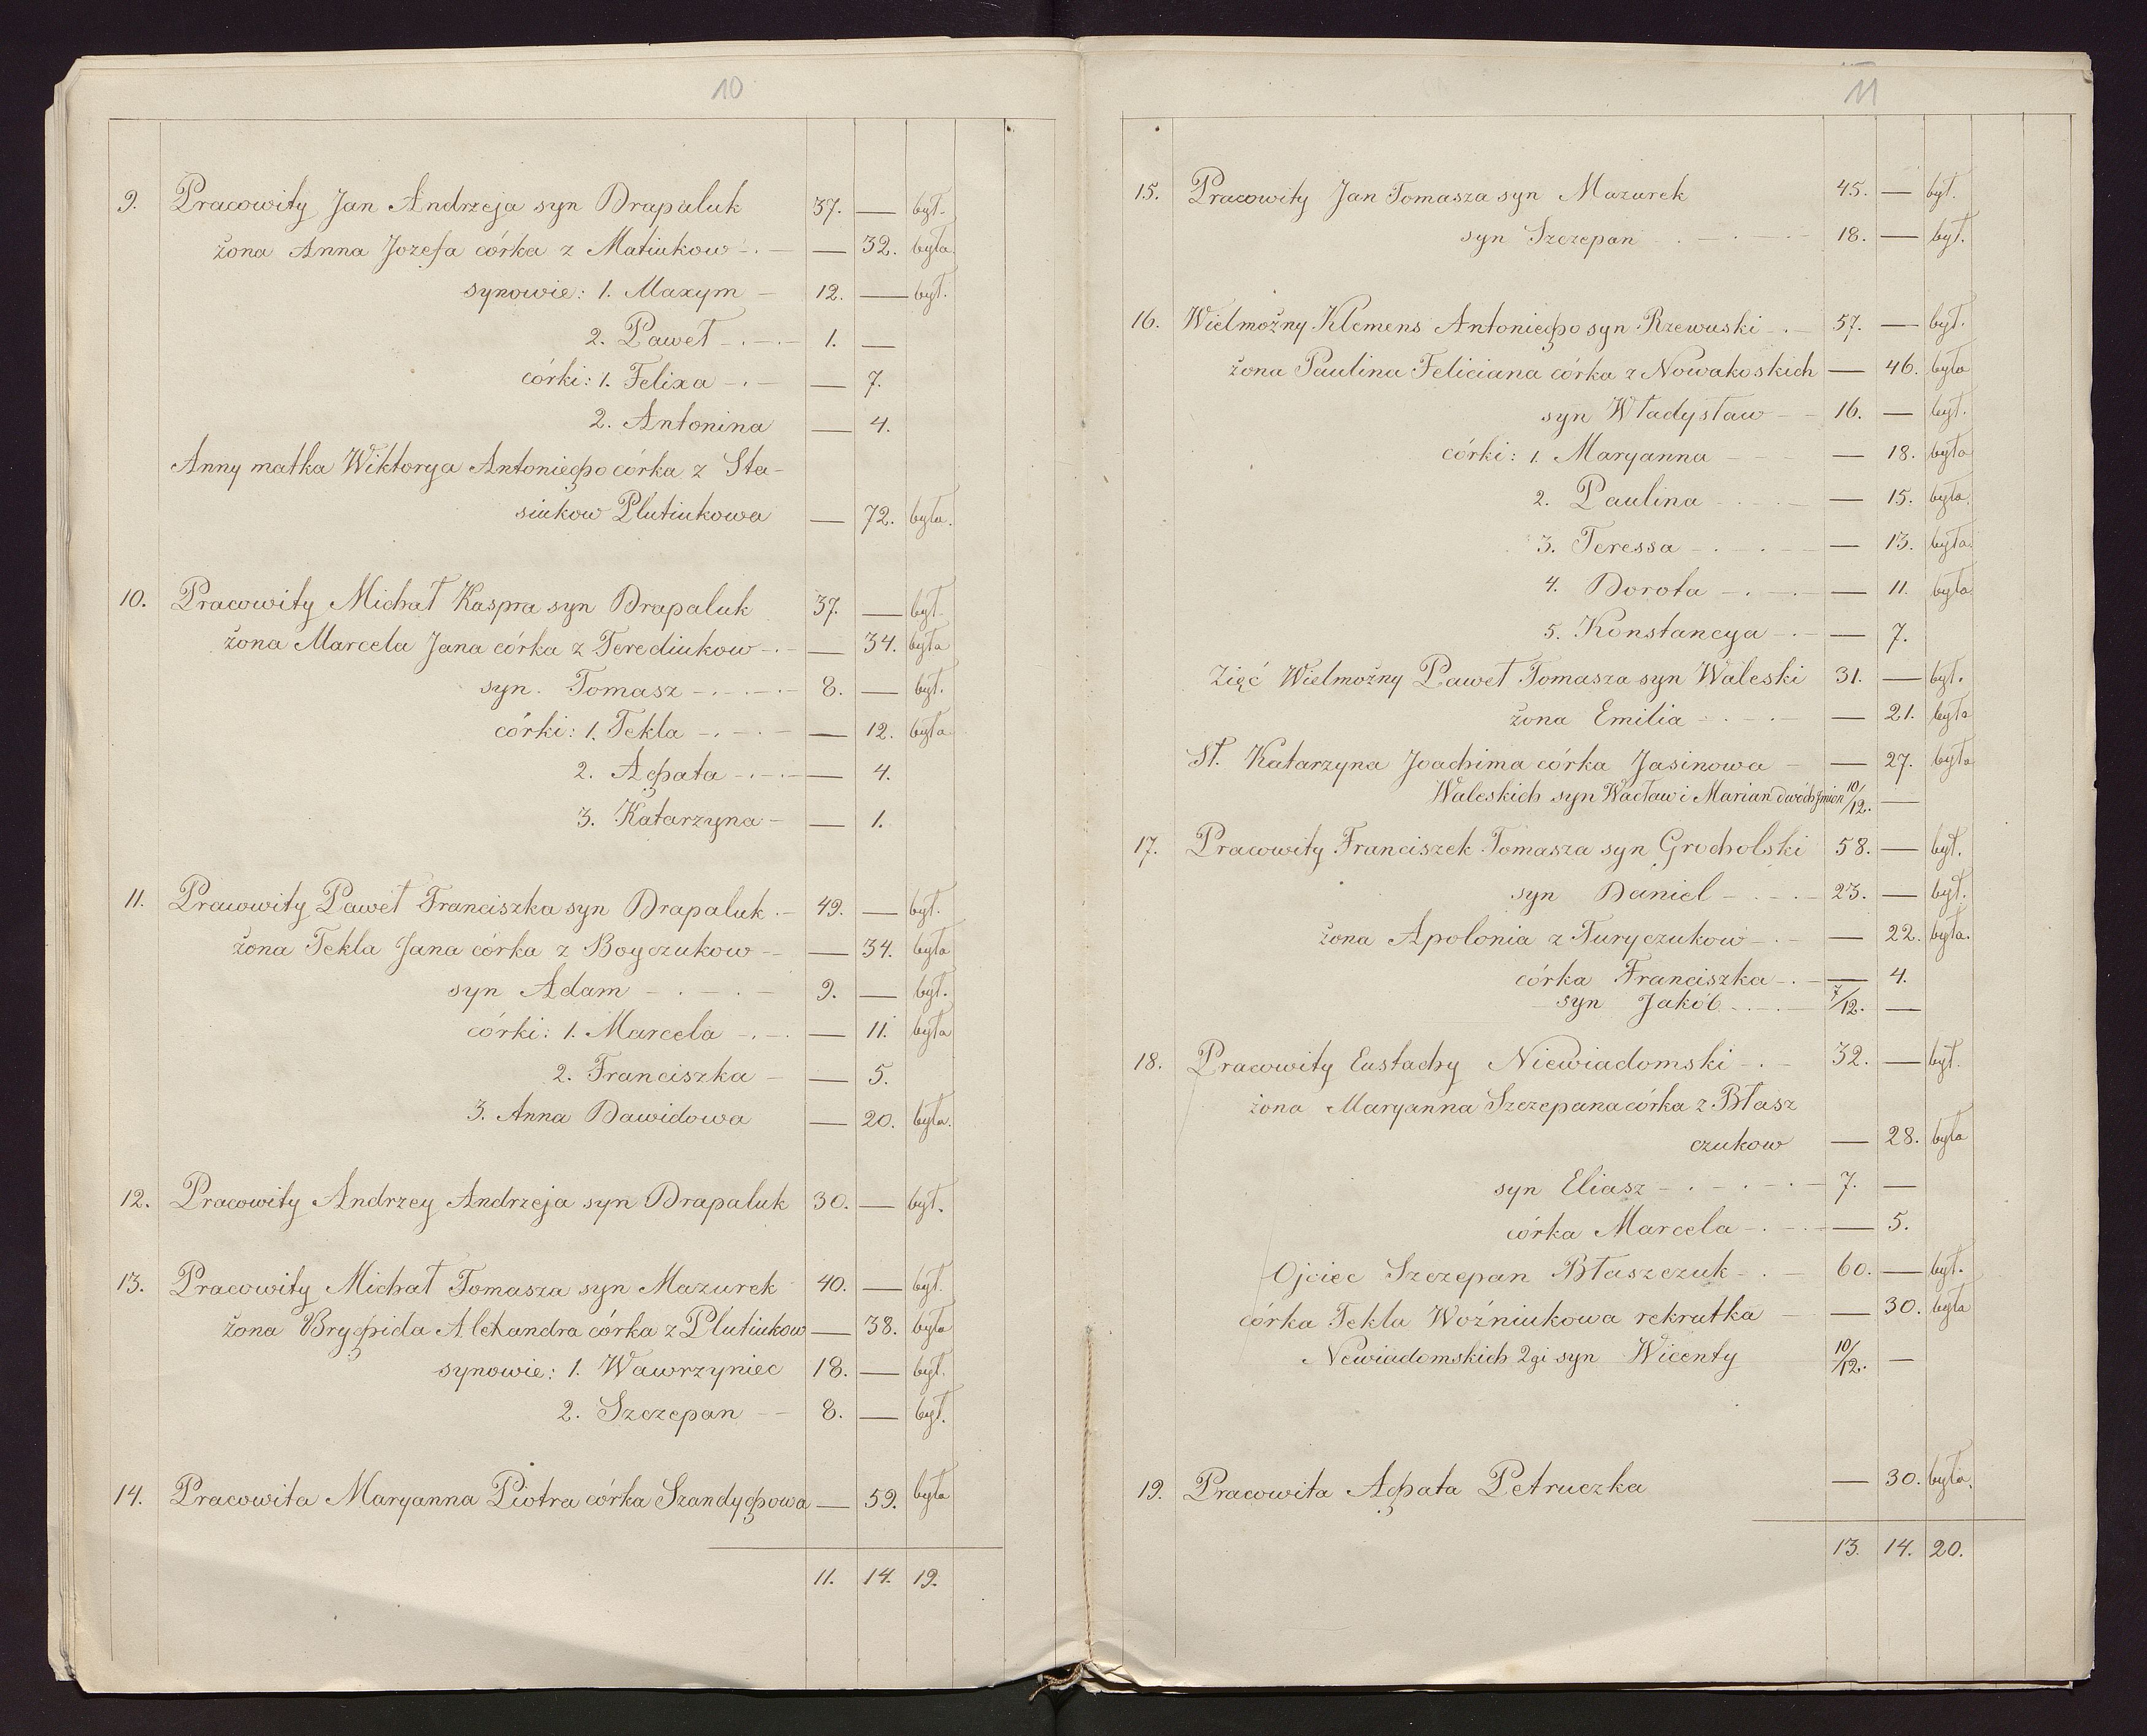 10
9. Pracowity Jan Andrzeja syn Drapaluk 37. — był.
żona Anna Jozefa córka z Matiukow — 32. była
synowie: 1. Maxym — 12. — był.
2. Paweł 1. —
córki: 1. Felixa — 7.
2. Antonina — 4.
Anny matka Wiktorya Antoniego córka z Sta-
siukow Plutiukowa — 72. była.
10. Pracowity Michał Kaspra syn Drapaluk 37. — był.
żona Marcela Jana córka z Terediukow — 34. była
syn. Tomasz 8. — był.
córki: 1. Tekla — 12. była
2. Agata — 4.
3. Katarzyna — 1.
11. Pracowity Paweł Franciszka syn Drapaluk 49. — był.
żona Tekla Jana córka z Boyczukow — 34. była
syn Adam 9. — był.
córki: 1. Marcela — 11. była
2. Franciszka — 5.
3. Anna Dawidowa — 20. była.
12. Pracowity Andrzey Andrzeja syn Drapaluk 30. — był.
13. Pracowity Michał Tomasza syn Mazurek 40. — był.
żona Brygida Alexandra córka z Plutiukow — 38. była
synowie: 1. Wawrzyniec 18. — był.
2. Szczepan 8. — był.
14. Pracowita Maryanna Piotra córka Szandygowa — 59. była
11. 14. 19.
11
15. Pracowity Jan Tomasza syn Mazurek 45. — był.
syn Szczepan 18. — był.
16. Wielmożny Klemens Antoniego syn Rzewuski 57. — był.
żona Paulina Feliciana córka z Nowakoskich — 46. była
syn Władysław 16. — był.
córki: 1. Maryanna — 18. była
2. Paulina — 15. była.
3. Teressa — 13. była.
4. Dorota — 11. była
5. Konstancya — 7.
Zięć Wielmożny Paweł Tomasza syn Waleski 31. — był.
żona Emilia — 21. była
Sł. Katarzyna Joachima córka Jasinowa — 27. była
Waleskich syn Wacław i Marian dwóch Imion 10/12. —
17. Pracowity Franciszek Tomasza syn Grocholski 58. — był.
syn Daniel 23. — był.
żona Apolonia z Turyczukow — 22. była.
córka Franciszka — 4.
syn Jakób 7/12. —
18. Pracowity Eustachy Niewiadomski 32. — był.
żona Maryanna Szczepana córka z Błasz
czukow — 28. była
syn Eliasz 7. —
córka Marcela — 5.
Ojciec Szczepan Błaszczuk 60. — był.
córka Tekla Woźniukowa rekrutka — 30. była
Newiadomskich 2gi syn Wicenty 10/12. —
19. Pracowita Agata Petruczka — 30. była.
13. 14. 20.